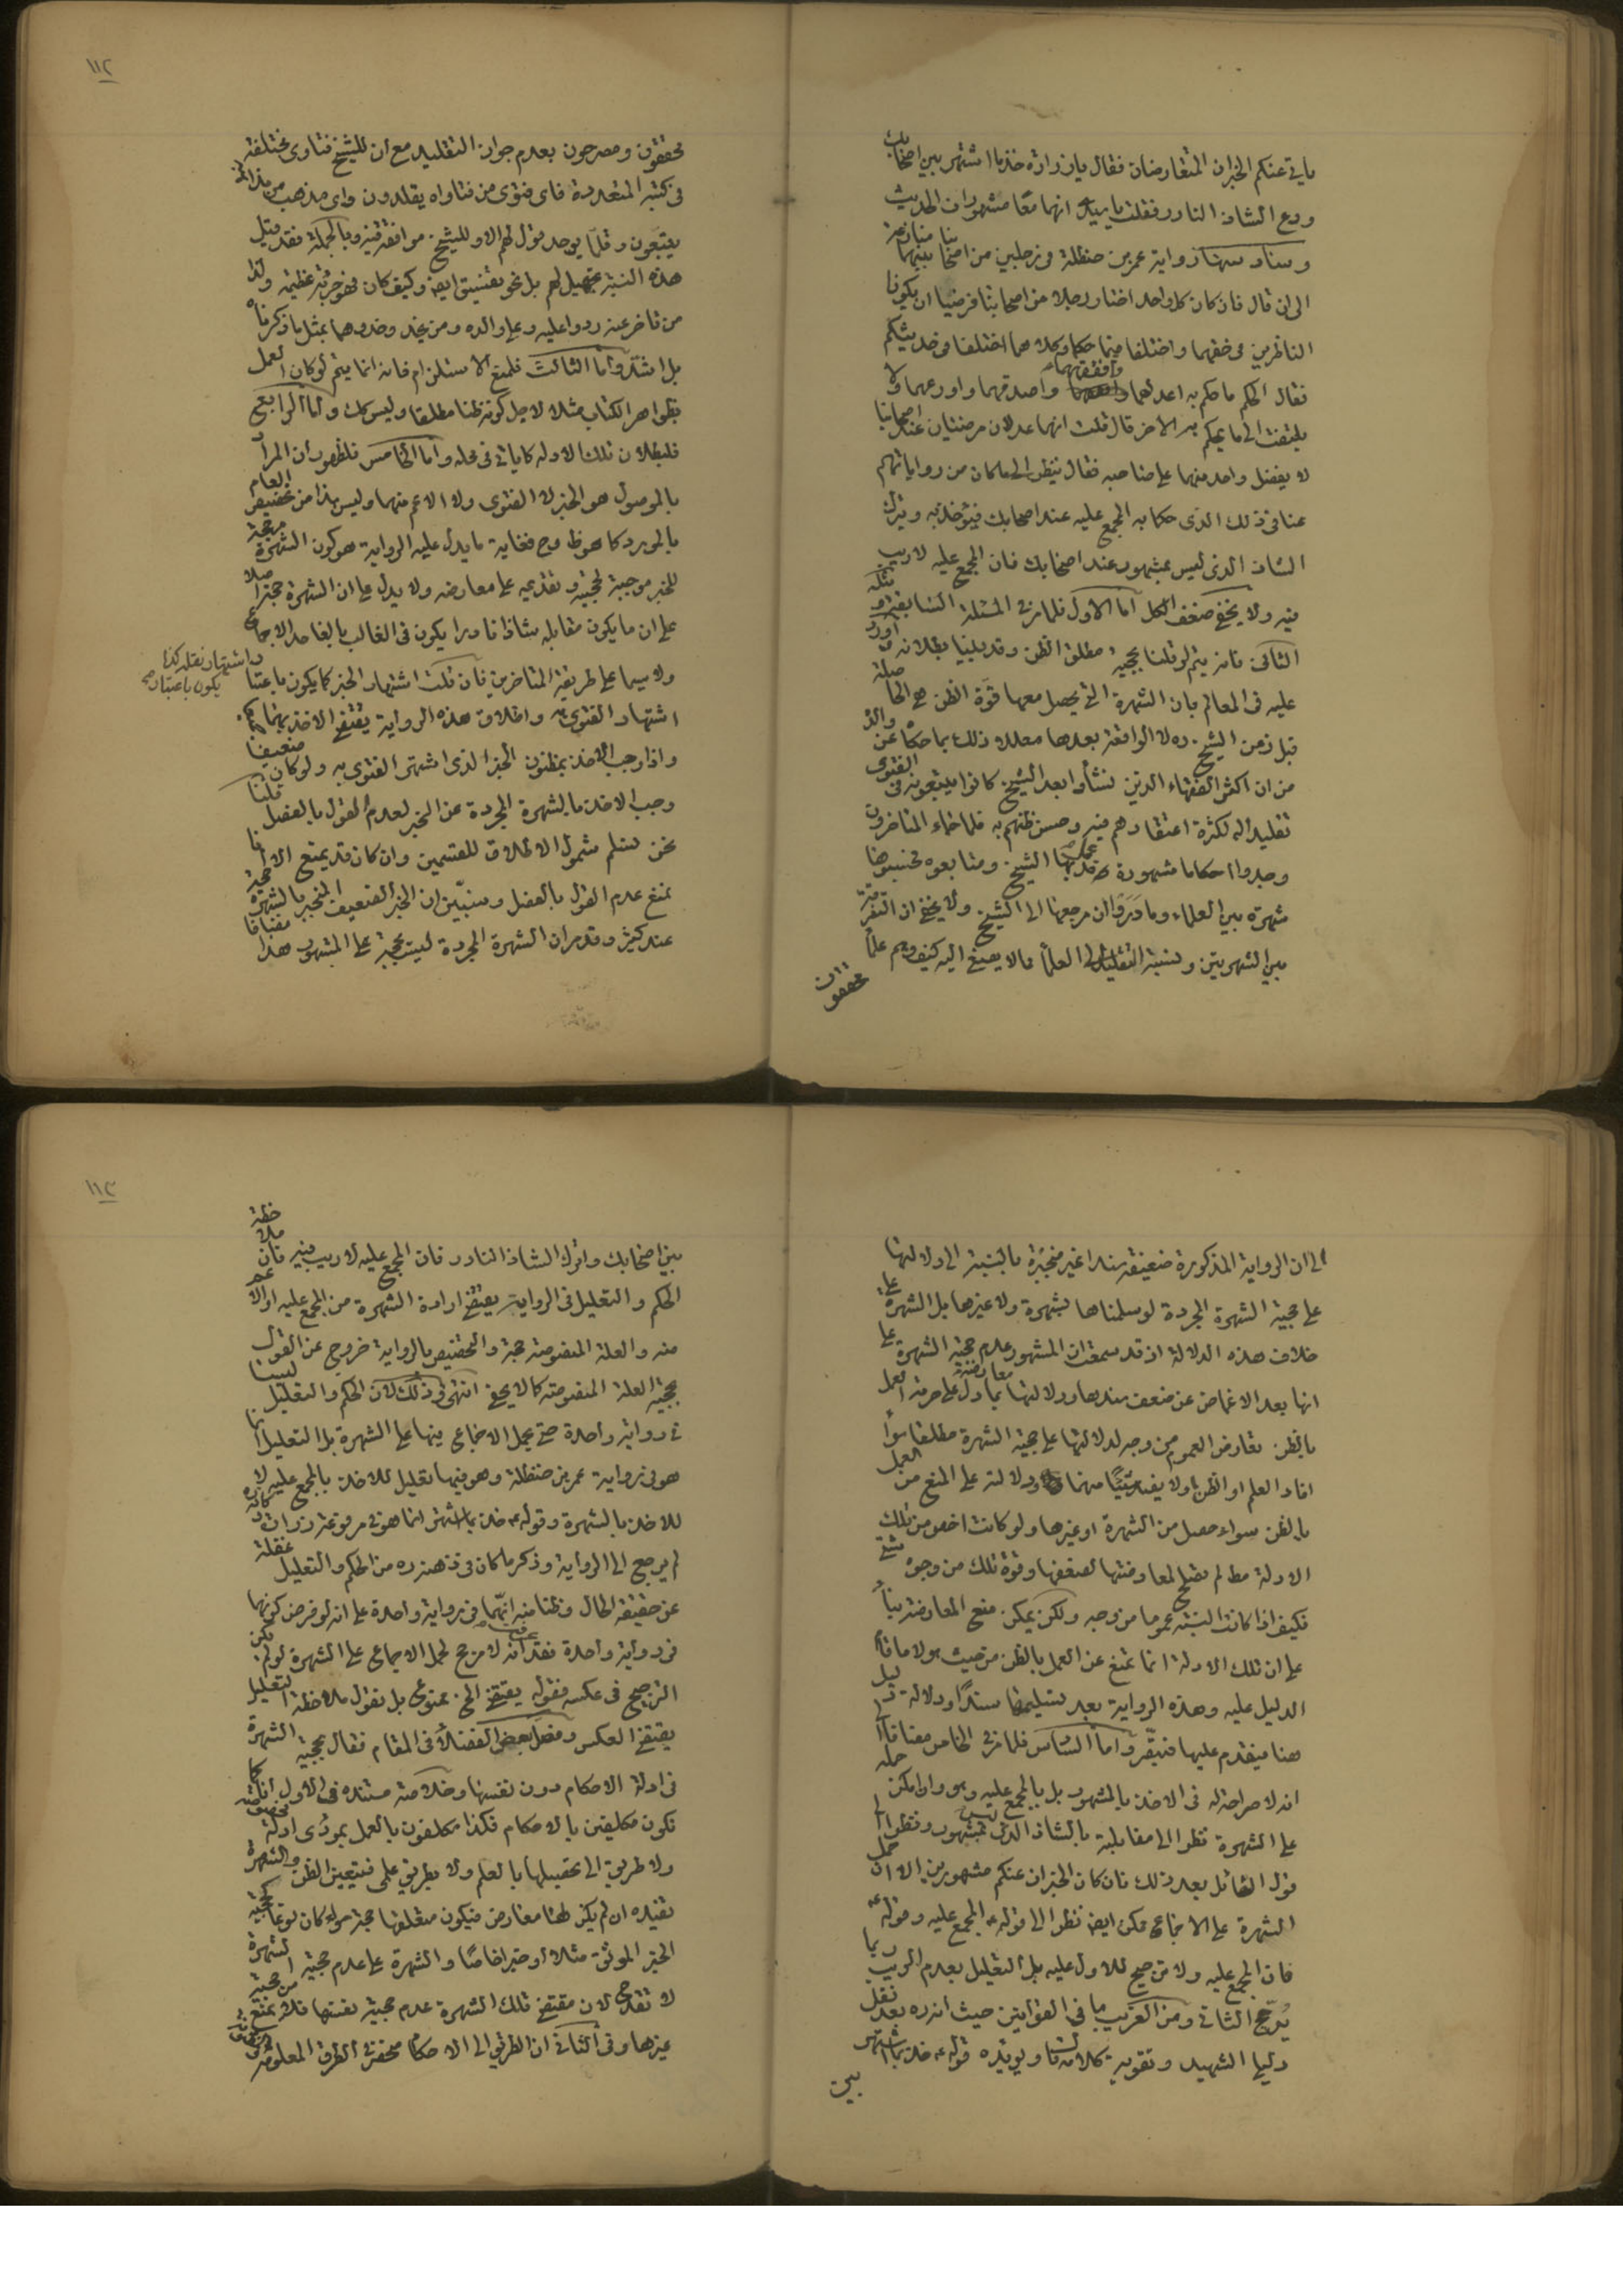 ياتى عنكم الخبران المتعارضان فقال يا زرارة خذ بما اشتهر بين اصحابك
ودع الشاذ النادر فقلت يا سيدى انهما معًا مشهوران الحديث
وسادسها رواية عمر بن حنظلة فى رجلين من اصحابنا بينهما منازعة
الى ان قال فان كان كل واحد اختار رجلا من اصحابنا فرضيا ان يكونا
الناظرين فى حقهما واختلفا فيما حكما وكلاهما اختلفا فى حديثكم
فقال الحكم ما حكم به اعدلهما وافقههما واصدقهما واورعهما ولا
يلتفت الى ما يحكم به الاخر قال قلت انهما عدلان مرضيّان عند اصحابنا
لا يفضل واحد منهما على صاحبه فقال ينظر الى ما كان من رواياتهم
عنا فى ذلك الذى حكما به المجمع عليه عند اصحابك فيؤخذ به ويترك
الشاذ الذى ليس بمشهور عند اصحابك فان المجمع عليه لا ريب
فيه ولا يخفى ضعف الكل اما الاول فلما مر فى المسئلة السابقة و
الثانى فانه يتم لو قلنا بحجية مطلق الظن وقد بينا بطلانه و اورد
عليه فى المعالم بان الشهرة التى يحصل معها قوة الظن هى الحاصلة
قبل زمن الشيخ ره لا الواقعة بعدها معللا ذلك بما حكاه عن والده
من ان اكثر الفقهاء الذين نشأوا بعد الشيخ كانوا يتبعونه فى الفتوى
تقليدا له لكثرة اعتقادهم فيه وحسن ظنهم به فلما جاء المتاخرون
وجدوا احكاما مشهورة قد عمل بها الشيخ ومتابعوه فحسبوها
شهرة بين العلماء وما دَرَوا ان مرجعها الى الشيخ ولا يخفى ان التفرقة
بين الشهرتين ونسبة التقليد الى العلماء مما لا يصغى اليه كيف وهم علماء
محققون
١١٢
محققون ومصرحون بعدم جواز التقليد مع ان للشيخ فتاوى مختلفة
فى كتبه المتعددة فاى فتوى من فتاواه يقلدون واى مذهب من مذاهبه
يتبعون وقلّما يوجد قول لهم الا وللشيخ موافقة فيه وبالجملة فقد قيل
هذه النسبة تجهيل لهم بل نحو تفسيق ايضا وكيف كان فهو جرئة عظيمة ولذا
من تاخر عنه ردوا عليه وعلى والده ومن يحذو حذوهما بمثل ما ذكرناه
بل اشدّ واما الثالث فلمنع الاستلزام فانه انما يتم لو كان العمل
بظواهر الكتاب مثلا لاجل كونه ظنا مطلقا وليس كك واما الرابع
فلبطلان تلك الادلة كما ياتى فى محله واما الخامس فلظهور ان المراد
بالموصول هو الخبر لا الفتوى ولا الاعم منهما وليس هذا من تخصيص العام
بالمورد كما هو ظ وح فغاية ما يدل عليه الرواية هو كون الشهرة مرجحة
للخبر موجبة لحجيته وتقديمه على معارضه ولا يدل على ان الشهرة حجة اصلا
على ان ما يكون مقابله شاذا نادرا يكون فى الغالب بالغا حد الاجماع
ولا سيما على طريقة المتاخرين فان قلت اشتهار الخبر كما يكون باعتبار
اشتهار نقله كذا يكون باعتبار صح
اشتهار الفتوى به واطلاق هذه الرواية يقتضى الاخذ بهما
واذا وجب الاخذ بمظنون الخبر الذى اشتهر الفتوى به ولو كان ضعيفا
وجب الاخذ بالشهرة المجردة عن الخبر لعدم القول بالفصل قلنا
نحن نسلم شمول الاطلاق للقسمين وان كان قد يمنع الا انا
نمنع عدم القول بالفصل وسنبيّن ان الخبر الضعيف المنجبر بالشهرة حجة
عند كثير وقد مر ان الشهرة المجردة ليست بحجة على المشهور هذا مضافا
الى ان الرواية المذكورة ضعيفة سندا غير منجبرة بالنسبة الى دلالتها
على حجية الشهرة المجردة لو سلمناها بشهرة ولا غيرها بل الشهرة على
خلاف هذه الدلالة اذ قد سمعت ان المشهور عدم حجية الشهرة على
انها بعد الاغماض عن ضعف سندها ودلالتها معارضة بما دل على حرمة العمل
بالظن تعارض العموم من وجه لدلالتها على حجية الشهرة مطلقا سواء
افاد العلم او الظن او لا يفيد شيئا منهما ودلالته على المنع من العمل
بالظن سواء حصل من الشهرة او غيرها ولو كانت اخص من تلك
الادلة مط لم تصلح لمعارضتها لضعفها وقوة تلك من وجوه شتى
فكيف اذا كانت النسبة عموما من وجه ولكن يمكن منع المعارضة بناء
على ان تلك الادلة انما تمنع عن العمل بالظن من حيث هو لا ما قام
الدليل عليه وهذه الرواية بعد تسليمها سندًا ودلالة دليل
هنا فيقدم عليها فتبصّر واما السادس فلما مر فى الخامس مضافا الى
انه لا صراحة له فى الاخذ بالمشهور بل بالمجمع عليه وهو وان امكن حمله
على الشهرة نظرا الى مقابلته بالشاذ الذى ليس بمشهور ونظرا الى
قول القائل بعد ذلك فان كان الخبران عنكم مشهورين الا ان حمل
الشهرة على الاجماع ممكن ايضا نظرا الى قوله ع المجمع عليه وقوله ع
فان المجمع عليه ولا ترجيح للاول عليه بل التعليل بعدم الريب ربما
يُرجّح الثانى ومن الغريب ما فى القوانين حيث انه ره بعد نقل
دليلى الشهيد وتقوية كلامه قال ويؤيده قوله ع خذ بما اشتهر
بين
١١٣
بين اصحابك واترك الشاذ النادر فان المجمع عليه لا ريب فيه فان ملاحظة
الحكم والتعليل فى الرواية يقتضى ارادة الشهرة من المجمع عليه او الاعم
منه والعلة المنصوصة حجة والتخصيص بالرواية خروج عن القول
بحجية العلة المنصوصة كما لا يخفى انتهى وذلك لان الحكم والتعليل ليسا
فى رواية واحدة حتى يحمل الاجماع فيها على الشهرة بل التعليل انما
هو فى رواية عمر بن حنظلة وهو فيها تعليل للاخذ بالمجمع عليه لا
للاخذ بالشهرة وقوله ع خذ بما اشتهر انما هو فى مرفوعة زرارة وكانه ره
لم يرجع الى الرواية وذكر ما كان فى ذهنه ره من الحكم والتعليل غفلة
عن حقيقة الحال وظنا منه انّهما فى رواية واحدة على انه لو فرض كونهما
فى رواية واحدة فقد عرفت انه لا مرجح لحمل الاجماع على الشهرة لو لم يكن
الترجيح فى عكسه فقوله يقتضى الخ ممنوع بل نقول ملاحظة التعليل
يقتضى العكس وفصل بعض الفضلاء فى المقام فقال بحجية الشهرة
فى ادلة الاحكام دون نفسها وخلاصة مستنده فى الاول انا كما
نكون مكلفين بالاحكام فكذا مكلفون بالعمل بمؤدى ادلة مخصوصة
ولا طريق الى تحصيلها بالعلم ولا بطريق علمى فتعين الظن والشهرة
تفيده ان لم يكن لها معارض فيكون متعلقها حجة سواء كان نوعا كحجية
الخبر الموثق مثلا او خبرا خاصًا والشهرة على عدم حجية الشهرة
لا تقدح لان مقتضى تلك الشهرة عدم حجية نفسها فلا يمنع من حجية
غيرها وفى الثانى ان الطريق الى الاحكام منحصر فى الطرق المعلومة